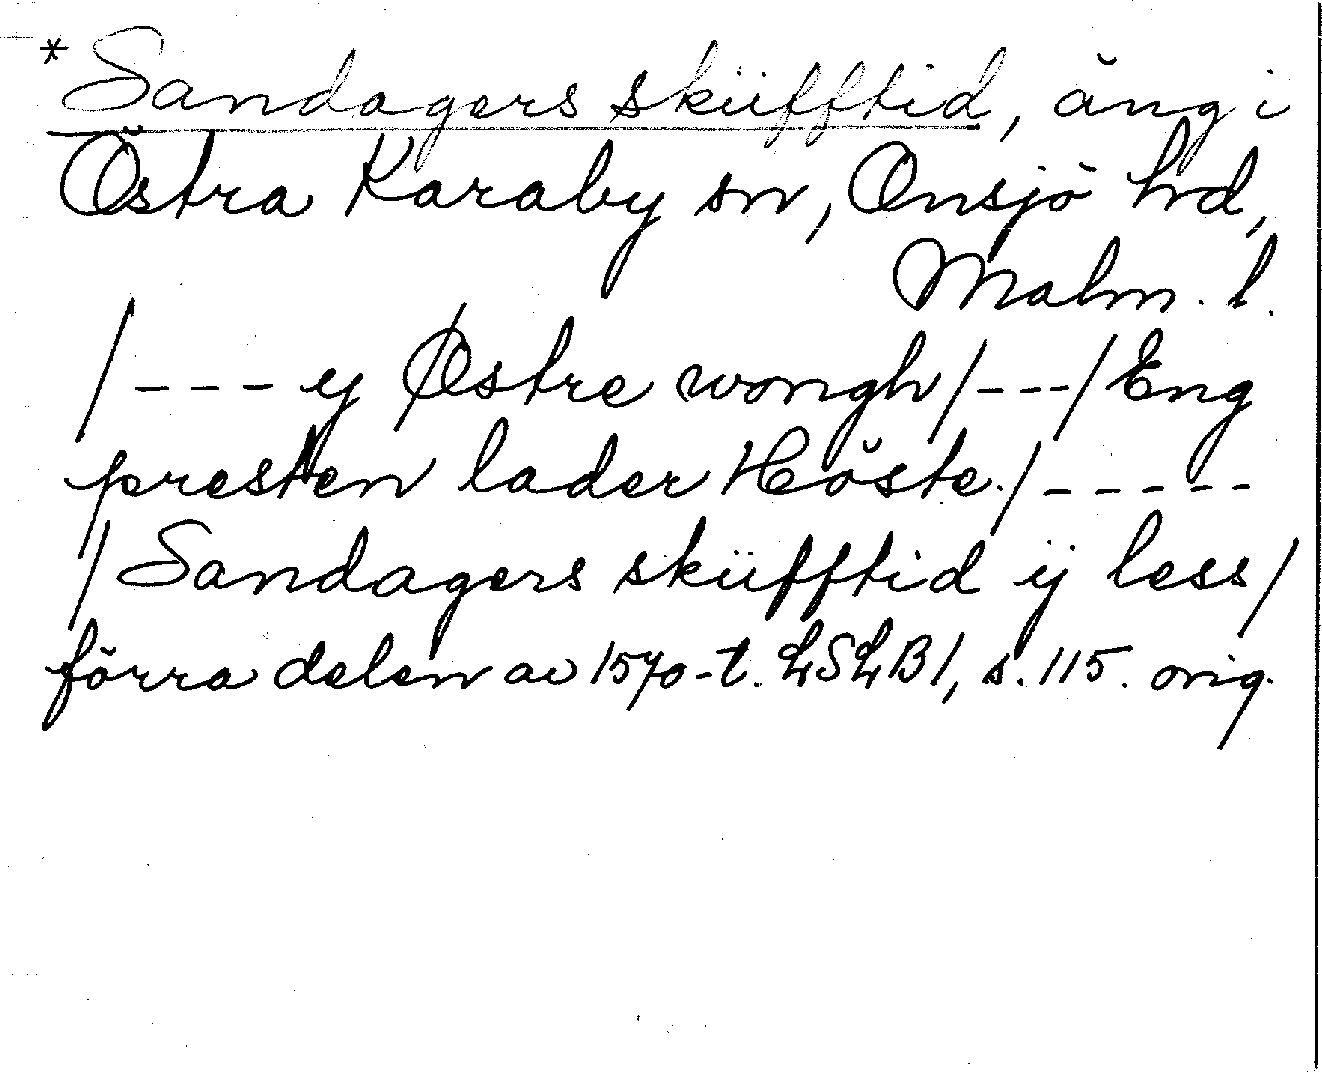 *Sandagers sküfftid, äng i
Östra Karaby sn, Onsjö hd,
Malm. l.
/---y Østre wongh/---/Eng
presten lader Höste./-----
/Sandagers sküfftid ij less/
förra delen av 1570-t. LSLB1, s. 115. orig.